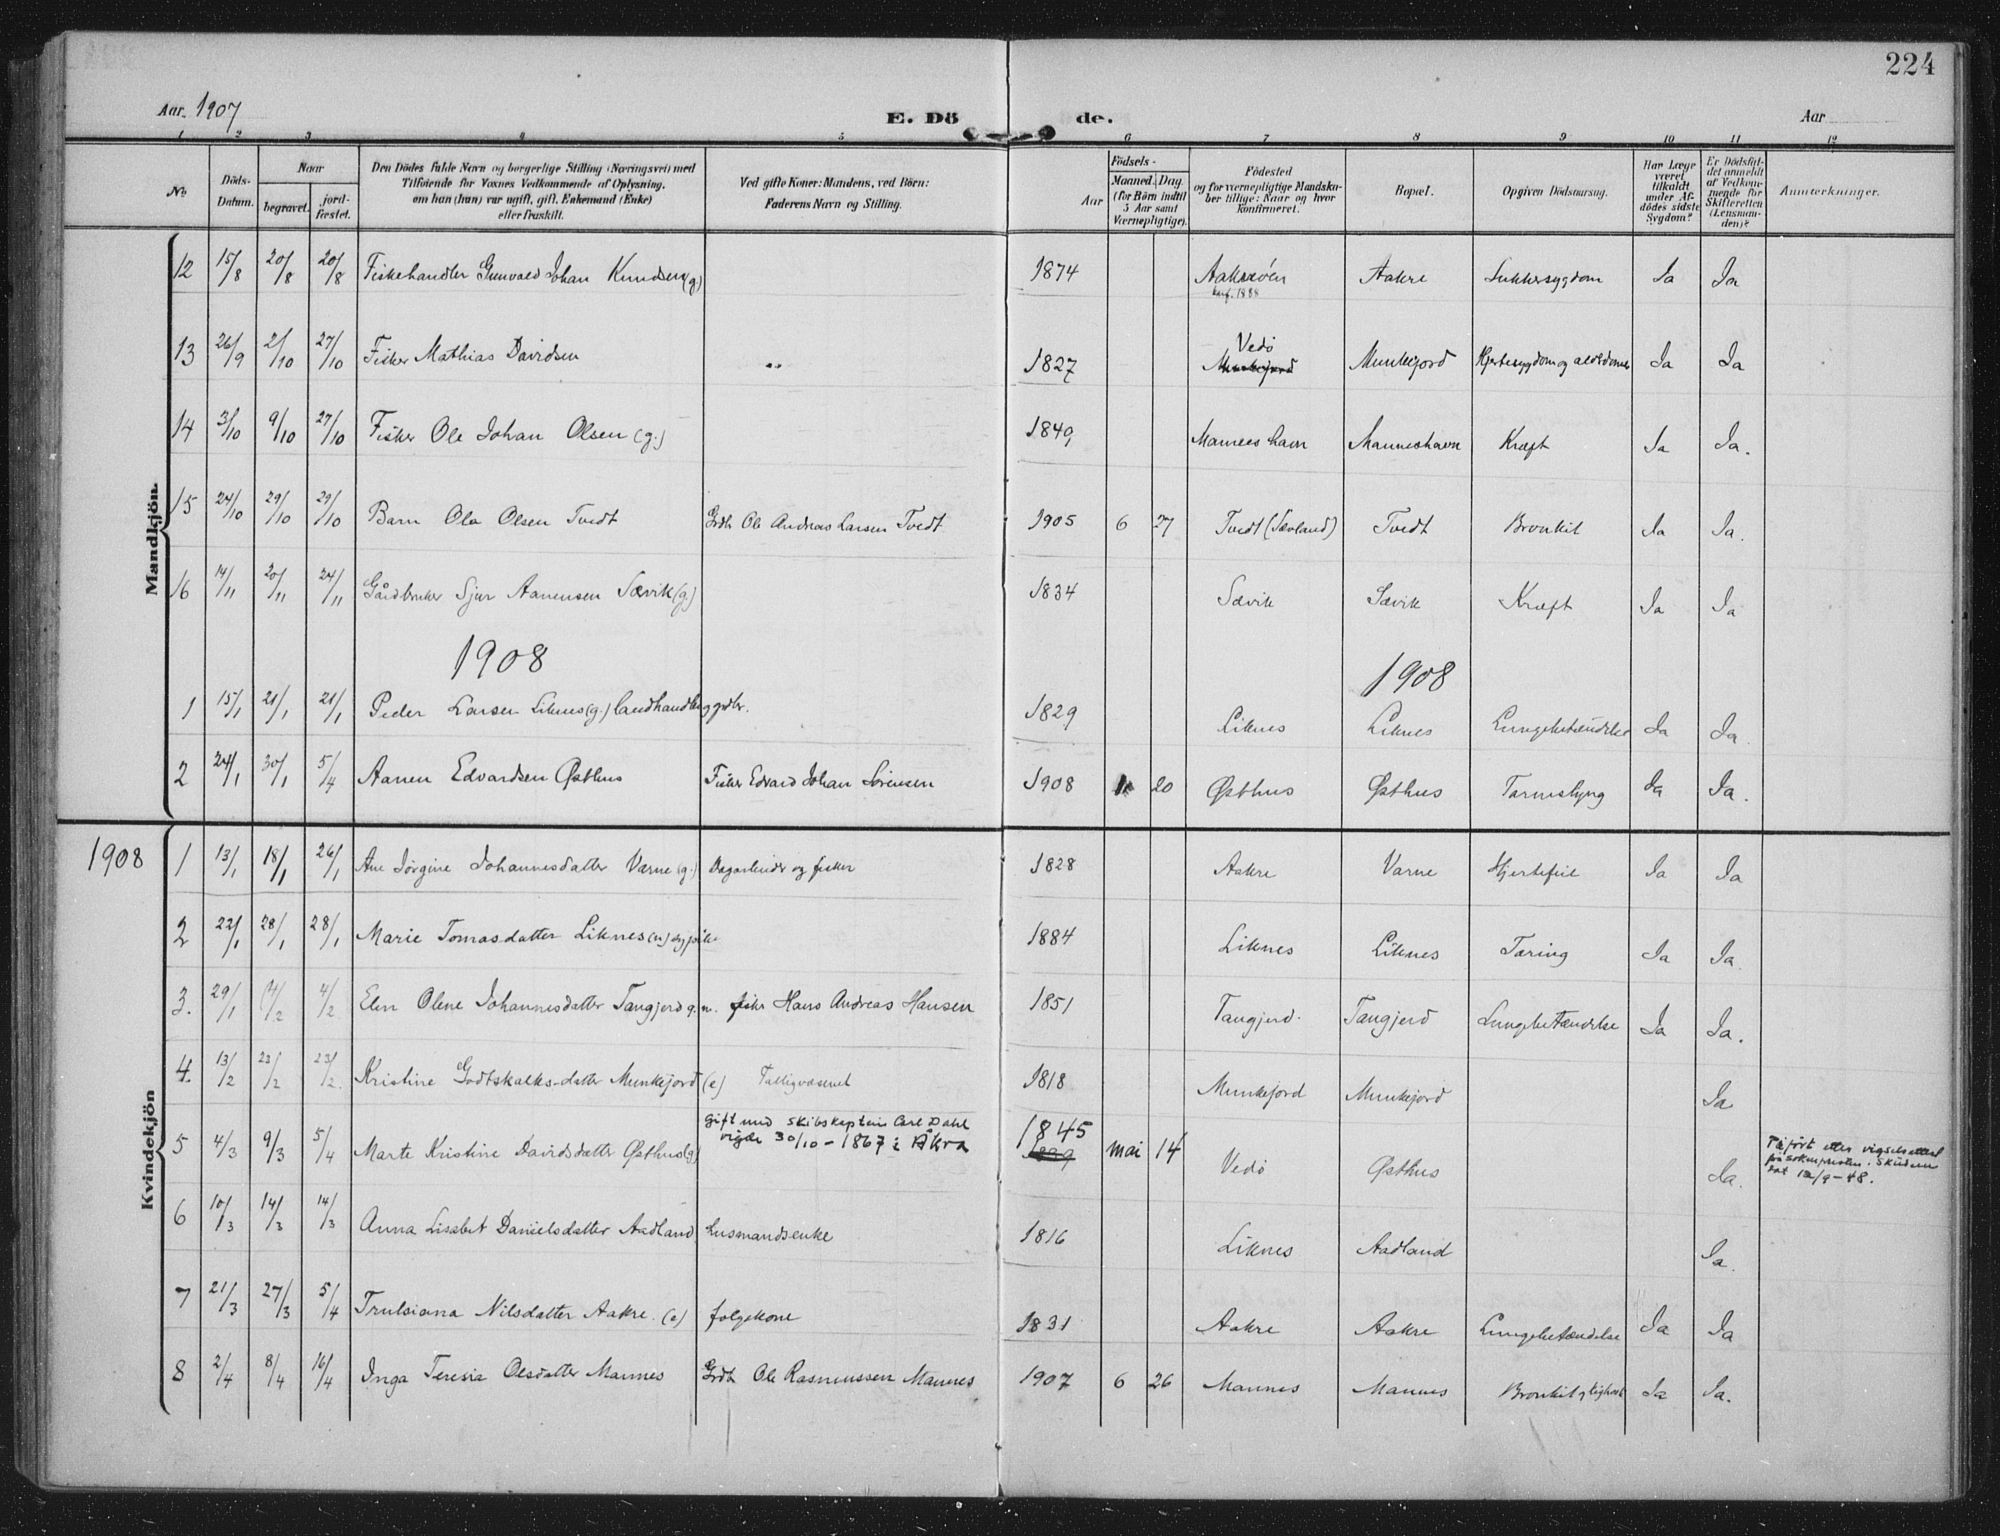 224
Aar 1907 E. Dö de. Aar
1 2 3 4 5 6 7 8 9 10 11 12
No. Döds-Datum. Naar begravet. jord-fæstet. Den Dödes fulde Navn og borgerlige Stilling (Næringsvei) med Tilföiende for Voxnes Vedkommende af Oplysning, om han (hun) var ugift, gift, Enkemand (Enke) eller fraskilt. Ved gifte Koner: Mandens, ved Börn: Faderens Navn og Stilling. Födsels- Aar Maaned. Dag. (for Börn indtil 5 Aar samt Værnepligtige). Födested og for værnepligtige Mandskaber tillige: Naar og hvor konfirmeret. Bopæl. Opgiven Dödsaarsag. Har Læge været tilkaldt under Afdödes sidste Sygdom? Er Dödsfaldet anmeldt af Vedkommende for Skifteretten (Lensmanden)? Anmerkninger.
Mandkjön.
12 15/8 20/8 20/8 Fiskehandler Gunvald Johan Knudsen (g.) 1874 Aakreøen konf. 1888 Aakre Sukkersygdom Ja Ja
13 26/9 2/10 27/10 Fisker Mathias Davidsen „ 1827 Vedø Munkejord Munkejord Hjertesygdom og alderdoms Ja Ja
14 3/10 9/10 27/10 Fisker Ole Johan Olsen (g.) 1849 Mannes havn Manneshavn Kræft Ja Ja.
15 24/10 29/10 29/10 Barn Ola Olsen Tvedt Grdb. Ole Andreas Larsen Tvedt 1905 6 27 Tvedt (Sævland) Tvedt Bronkit Ja Ja.
16 14/11 20/11 24/11 Gårdbruker Sjur Aanensen Sævik (g.) 1834 Sævik Sævik Kræft Ja Ja
1908 1908
1 15/1 21/1 21/1 Peder Larsen Liknes (g.) landhandler og grdbr. 1829 Liknes Liknes Lungebetændelse Ja Ja.
2 24/1 30/1 5/4 Aanen Edvardsen Østhus Fisker Edvard Johan Sørensen 1908 1 20 Østhus Østhus Tarmslyng Ja Ja.
Kvindekjön
1908 1 13/1 18/1 26/1 Ane Jørgine Johannesdatter Varne (g.) Dagarbeider og fisker 1828 Aakre Varne Hjertefeil Ja Ja
2 22/1 28/1 28/1 Marie Tomasdatter Liknes (u) sypike 1884 Liknes Liknes Tæring Ja Ja.
3. 29/1 4/2 4/2 Elen Olene Johannesdatter Tangjerd g. m. fisker Hans Andreas Hansen 1851 Tangjerd. Tangjerd Lungebetændelse Ja Ja.
4. 13/2 23/2 23/2. Kristine Godtskalks-datter Munkejord (e) Fattigvæsenet 1818 Munkejord Munkejord Ja
5 4/3 9/3 5/4 Marte Kristine Davidsdatter Østhus (g) Gift med skibskaptein Carl Dahl vigde 30/10 - 1867 i Åkra 1845 1839 mai 14 Vedø Østhus Ja. Tilført etter vigselsattest frå soknepresten i Skudenes dat 12/9-48.
6 10/3 14/3 14/3 Anna Lisabet Danielsdatter Aadland Husmandsenke 1816 Liknes Aadland Ja.
7 21/3 27/3 5/4 Trulsiana Nilsdatter Aakre. (e) følgekone 1831 Aakre Aakre Lungebetændelse Ja Ja
8 2/4 8/4 16/4 Inga Teresia Olsdatter Mannes Grdb. Ole Rasmussen Mannes 1907 6 26 Mannes Mannes Ja Ja.